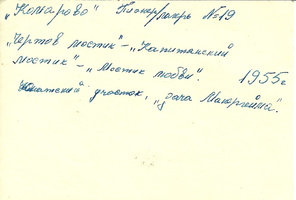 „Комарово" Пионерлагерь №19
„Чертов мостик" – „Капитанский
мостик" – „Мостик любви". 1955г
участок, „дача Маннергейма".